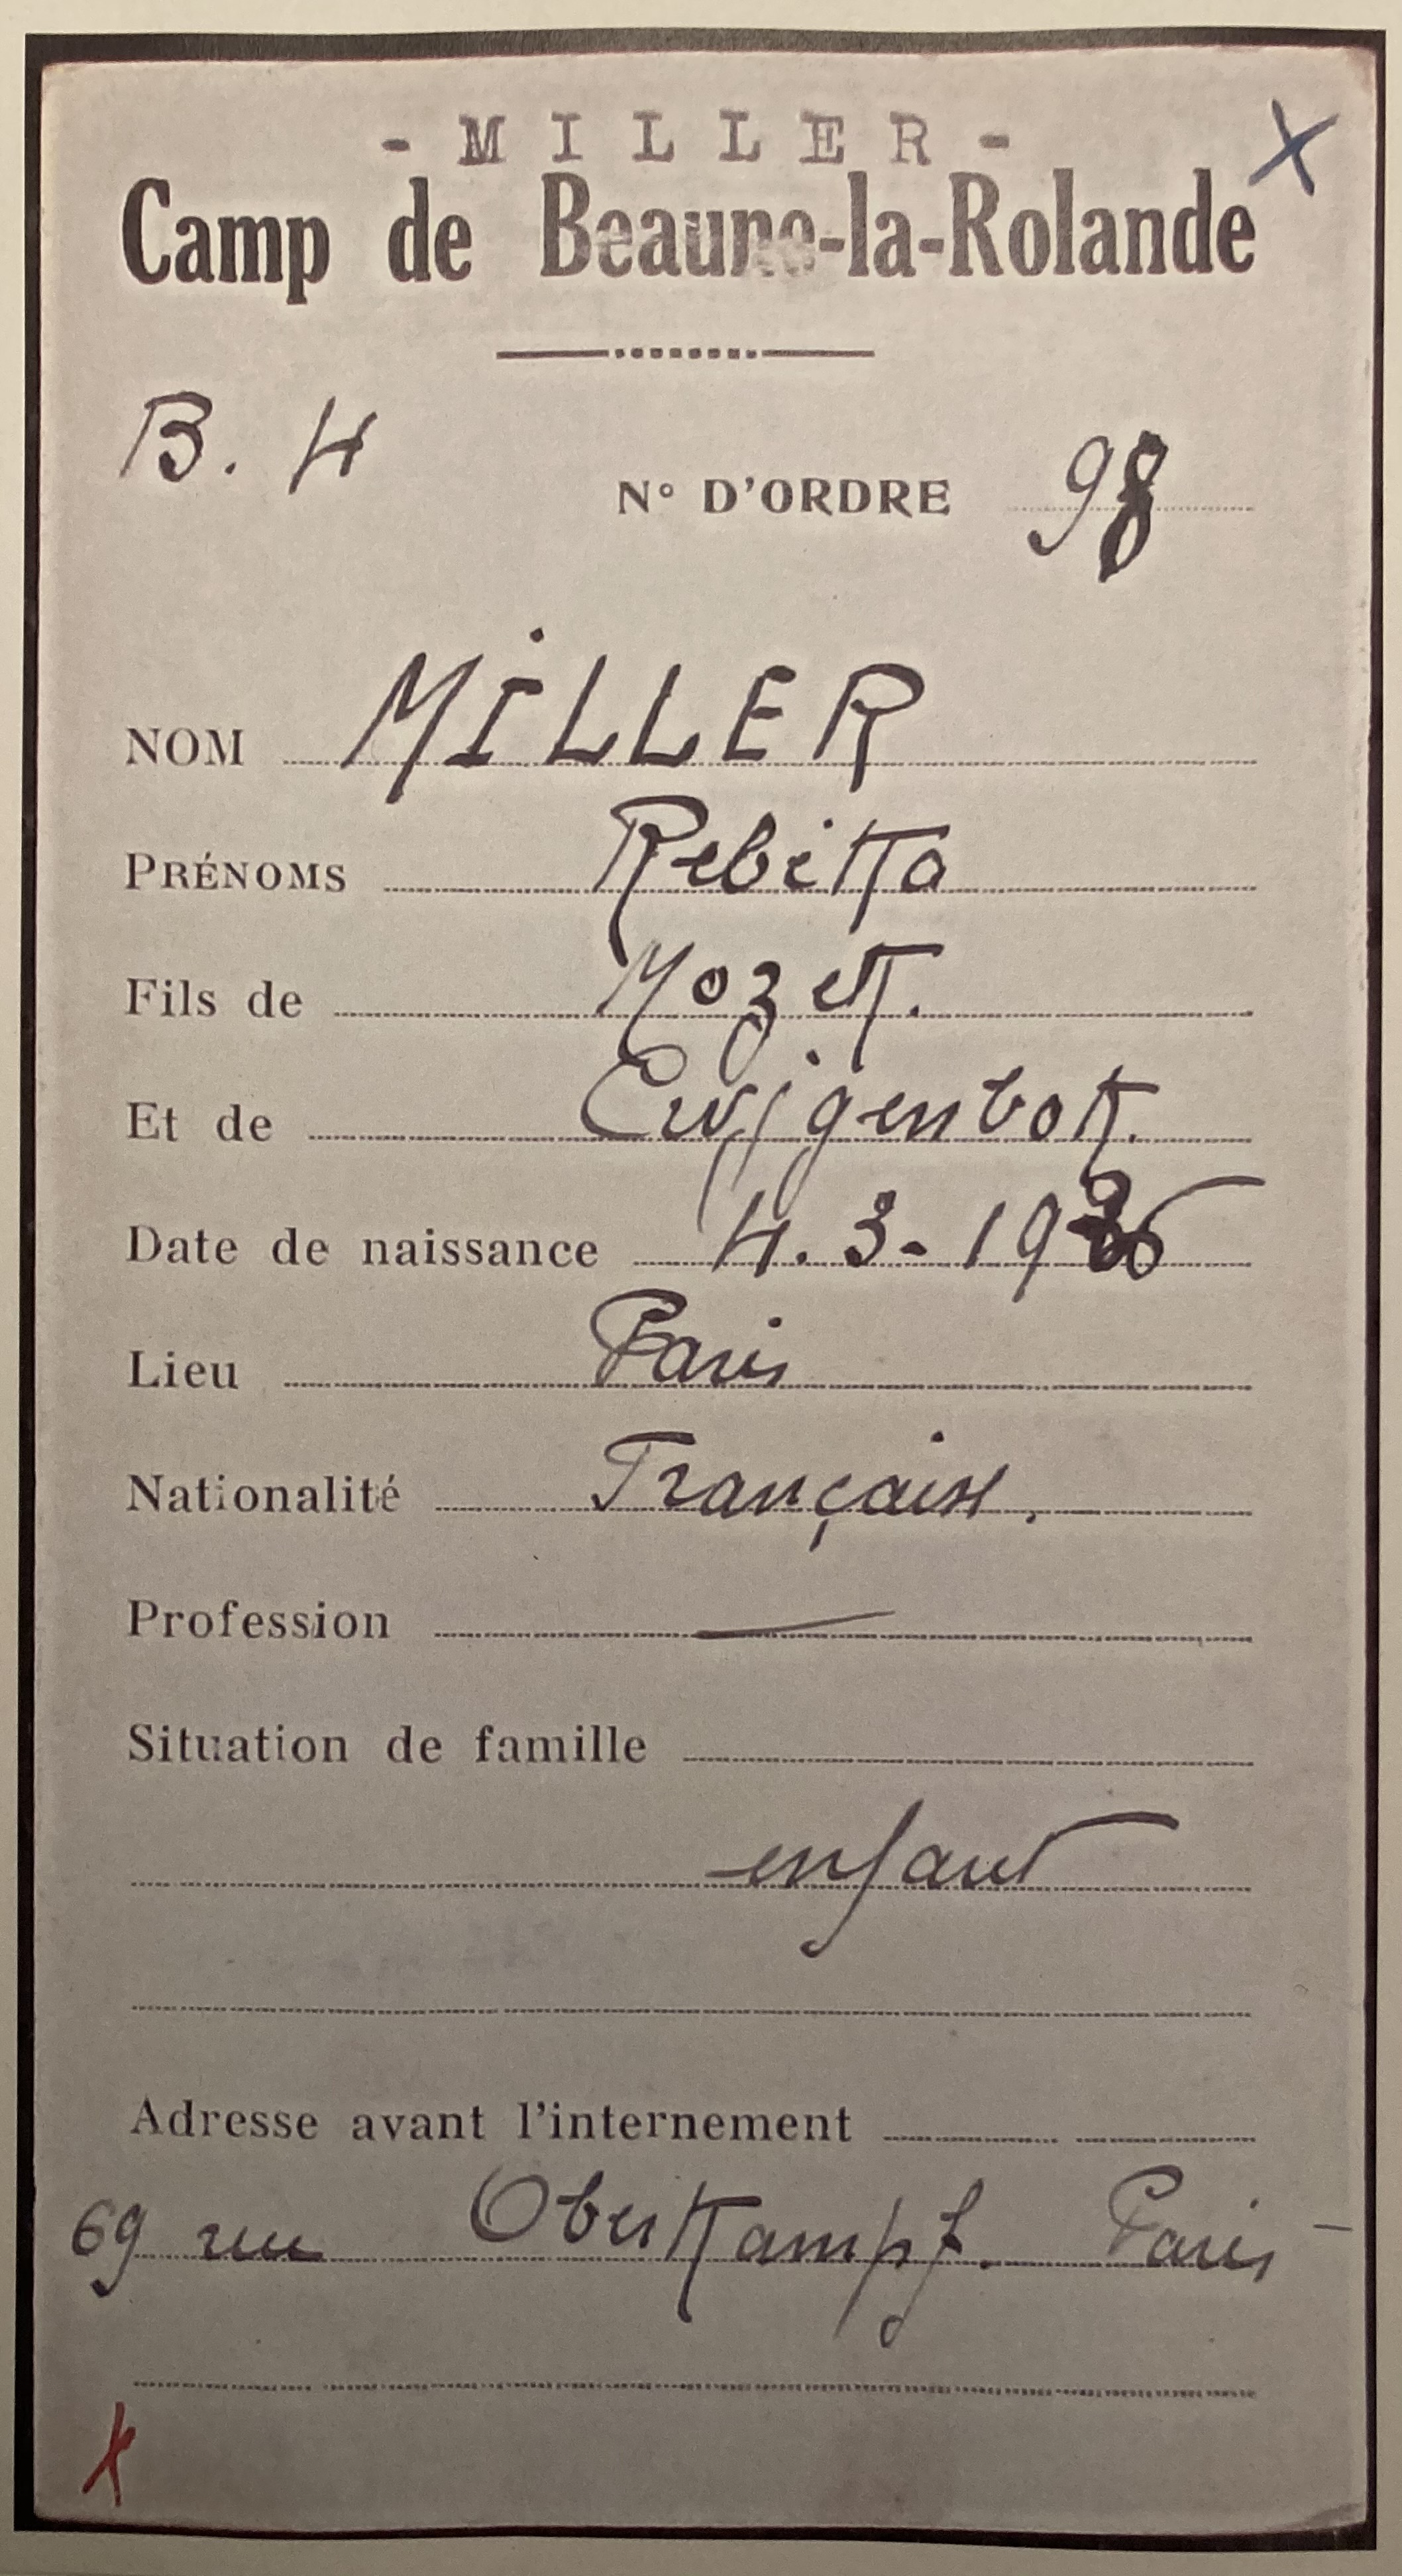 - M I L L E R -
Camp de Beaune-la-Rolande
B. 4
N° D'ORDRE 98
NOM MiLLER
PRÉNOMS Rebikka
Fils de
Et de
Date de naissance 4.3-1936
Lieu Paris
Nationalité Française.
Profession —
Situation de famille
enfant
Adresse avant l'internement
69 rue Oberkampf. Paris -